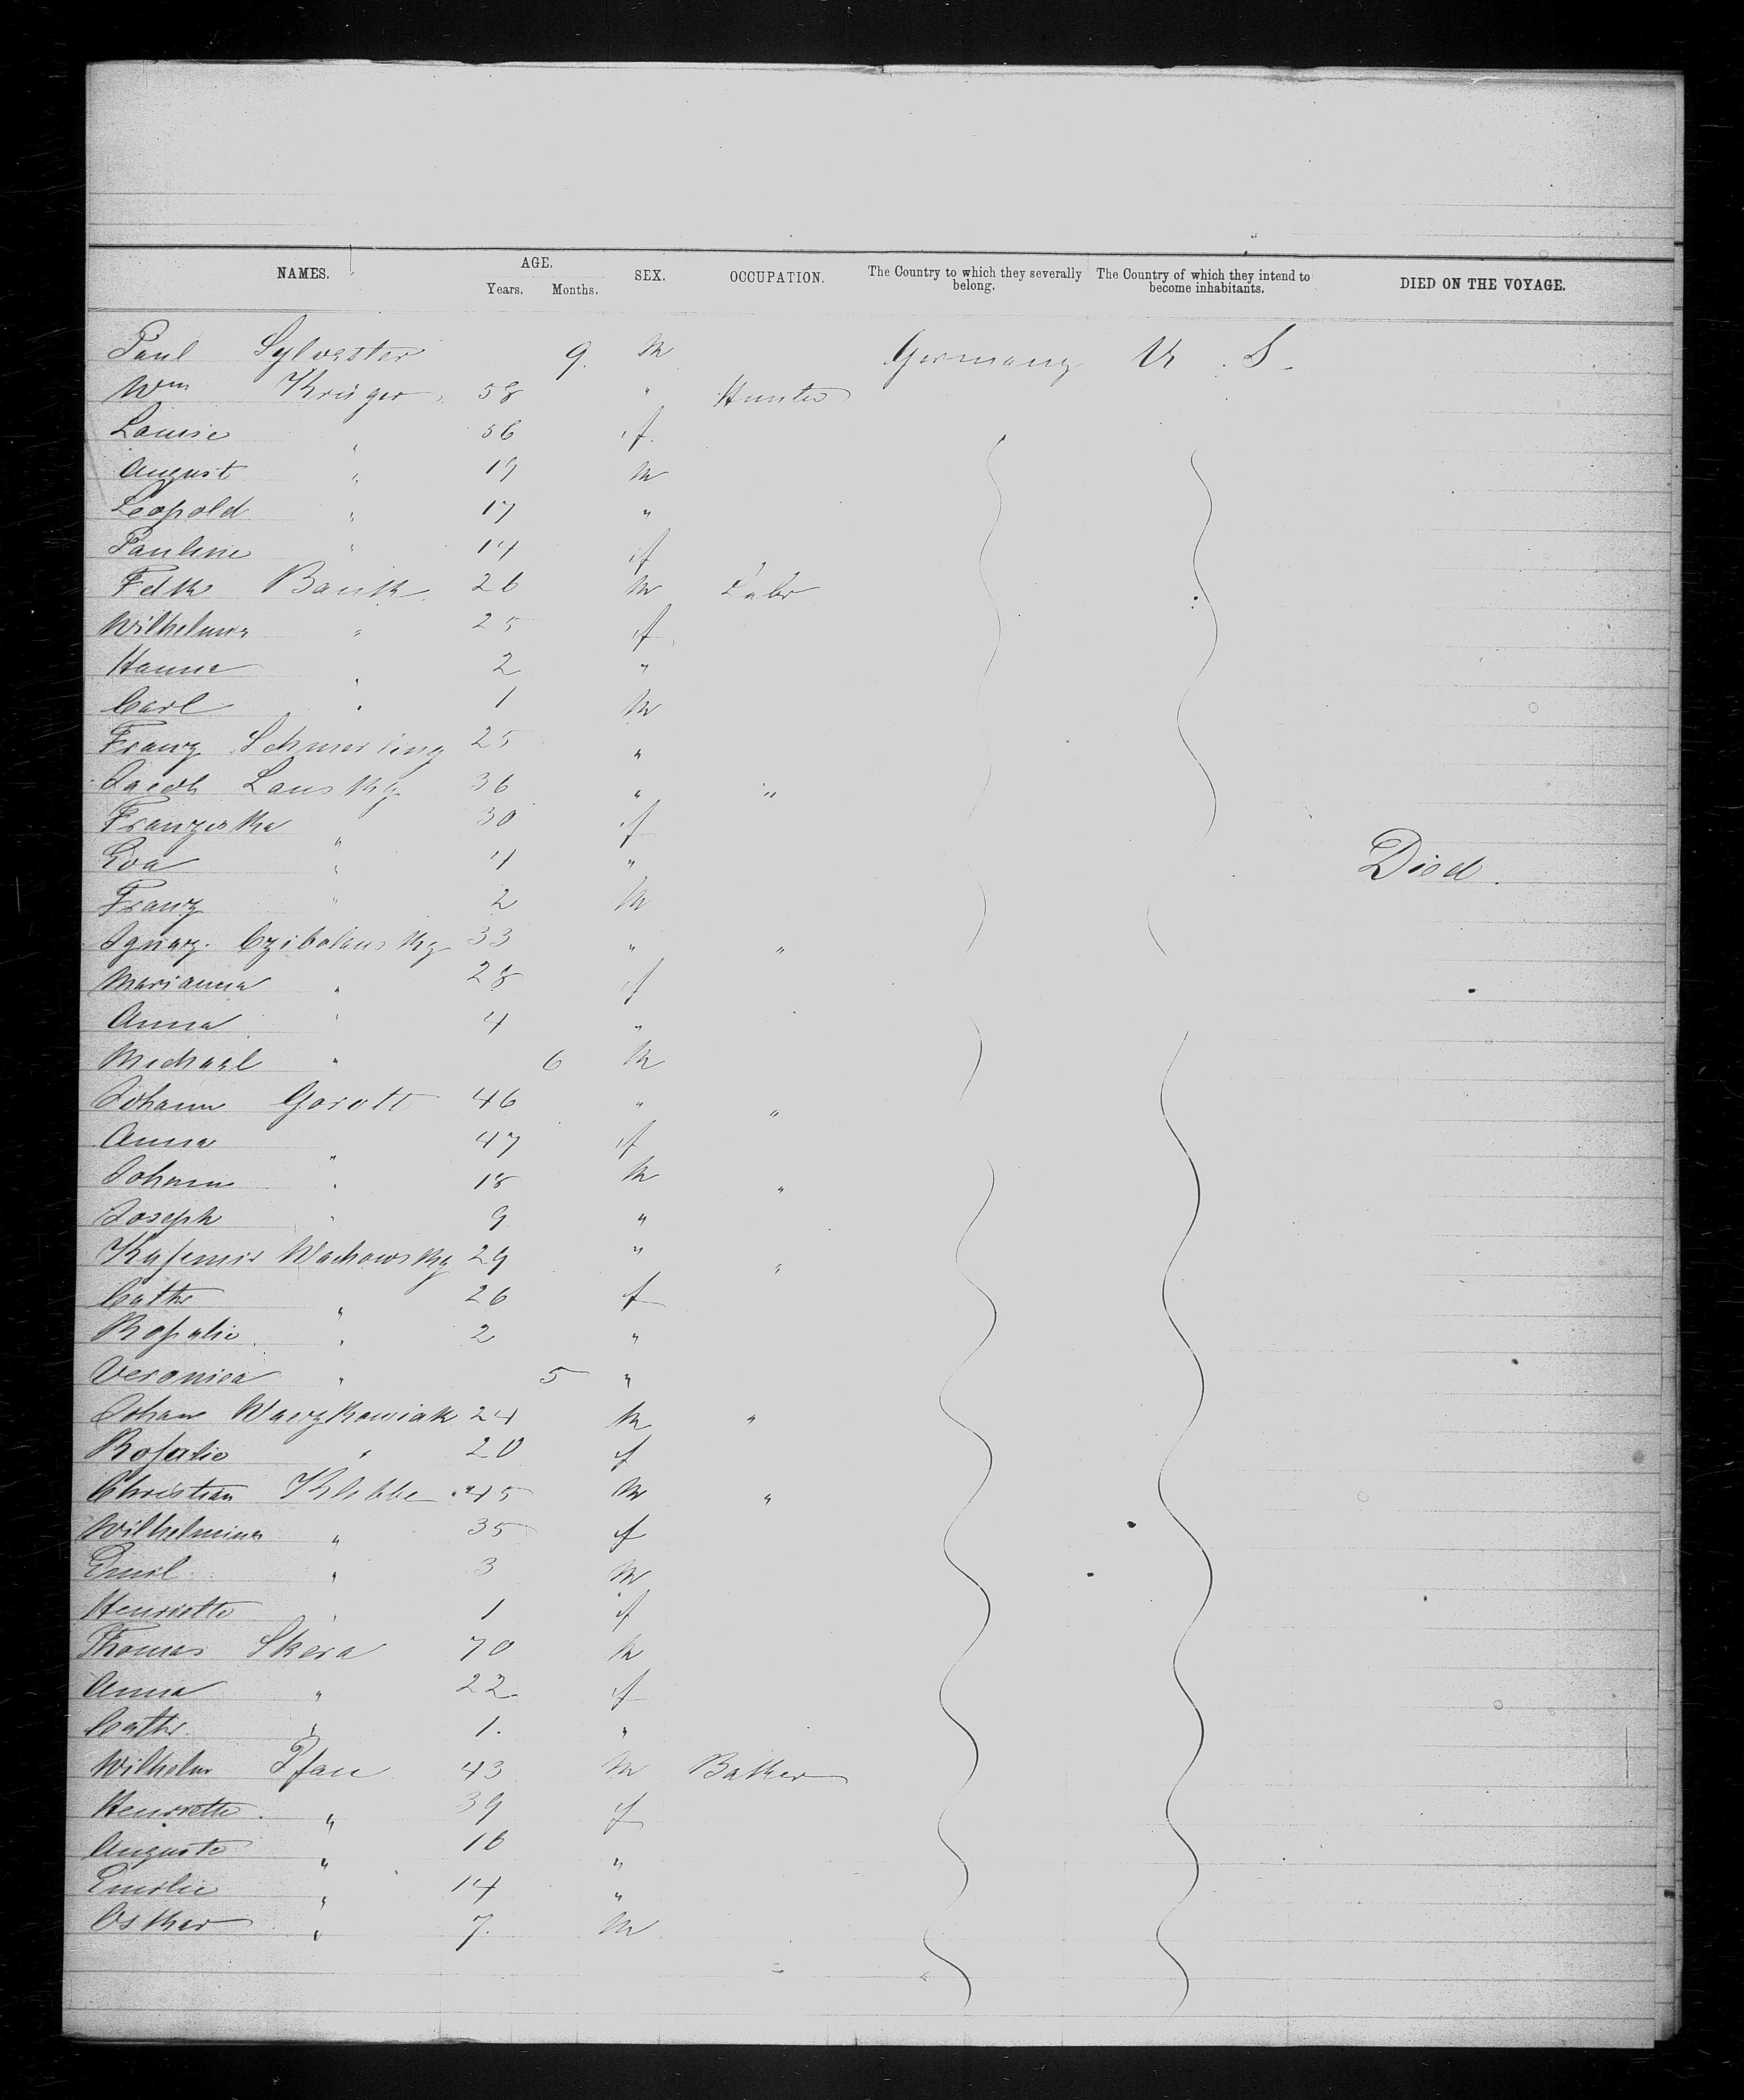 NAMES. AGE. SEX. OCCUPATION. The Country to which they severally belong. The Country of which they intend to become inhabitants. DIED ON THE VOYAGE.
Years. Months.
Paul Sylvester 9. M Germany U. S.
Wm Krüger 58 " Hunter
Louise " 56 f.
August " 19 M
Leopold " 17 "
Pauline " 14 f
Fdk Bank 26 M Labr
Wilhelmina " 25 f
Hanna " 2 "
Carl " 1 M
Franz Schmerling 25 "
Jacob Lansky 36 " "
Franziska " 30 f
Eva " 4 " Died.
Franz " 2 M
Ignaz Czibolansky 33 " "
Marianna " 28 f
Anna " 4 "
Michael " 6 M
Johann Gorott 46 " "
Anna " 47 f
Johann " 18 M "
Joseph " 9 "
Kasemir Wachowsky 29 " "
Cathr " 26 f
Rosalie " 2 "
Veronica " 5 "
Johan Waczkowiak 24 M "
Rosalie " 20 f
Christian Klebbe 45 M "
Wilhelmina " 35 f
Emil " 3 M
Henriette " 1 f
Thomas Skera 70 M
Anna " 22 f
Cathr. " 1. "
Wilhelm Pfau 43 M Bakker
Henriette " 39 f
Auguste " 16 "
Emilie " 14 "
Oskar " 7. M